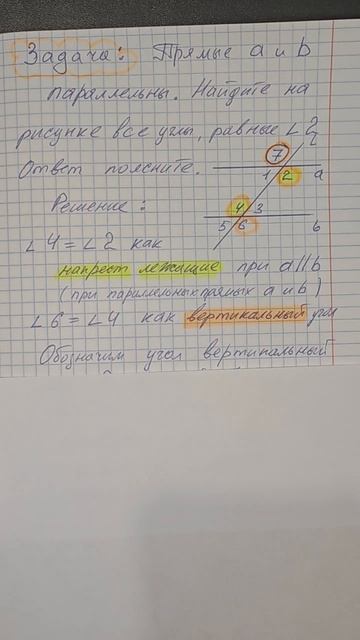 Задача: Прямые a и b
параллельны. Найдите на
рисунке все углы, равные ∠2
Ответ поясните.
7
1 2 a
Решение:
4 3
5 6 b
∠4 = ∠2 как
накрест лежащие при a||b
(при параллельных прямых a и b)
∠6 = ∠4 как вертикальный угол
Обозначим угол вертикальный